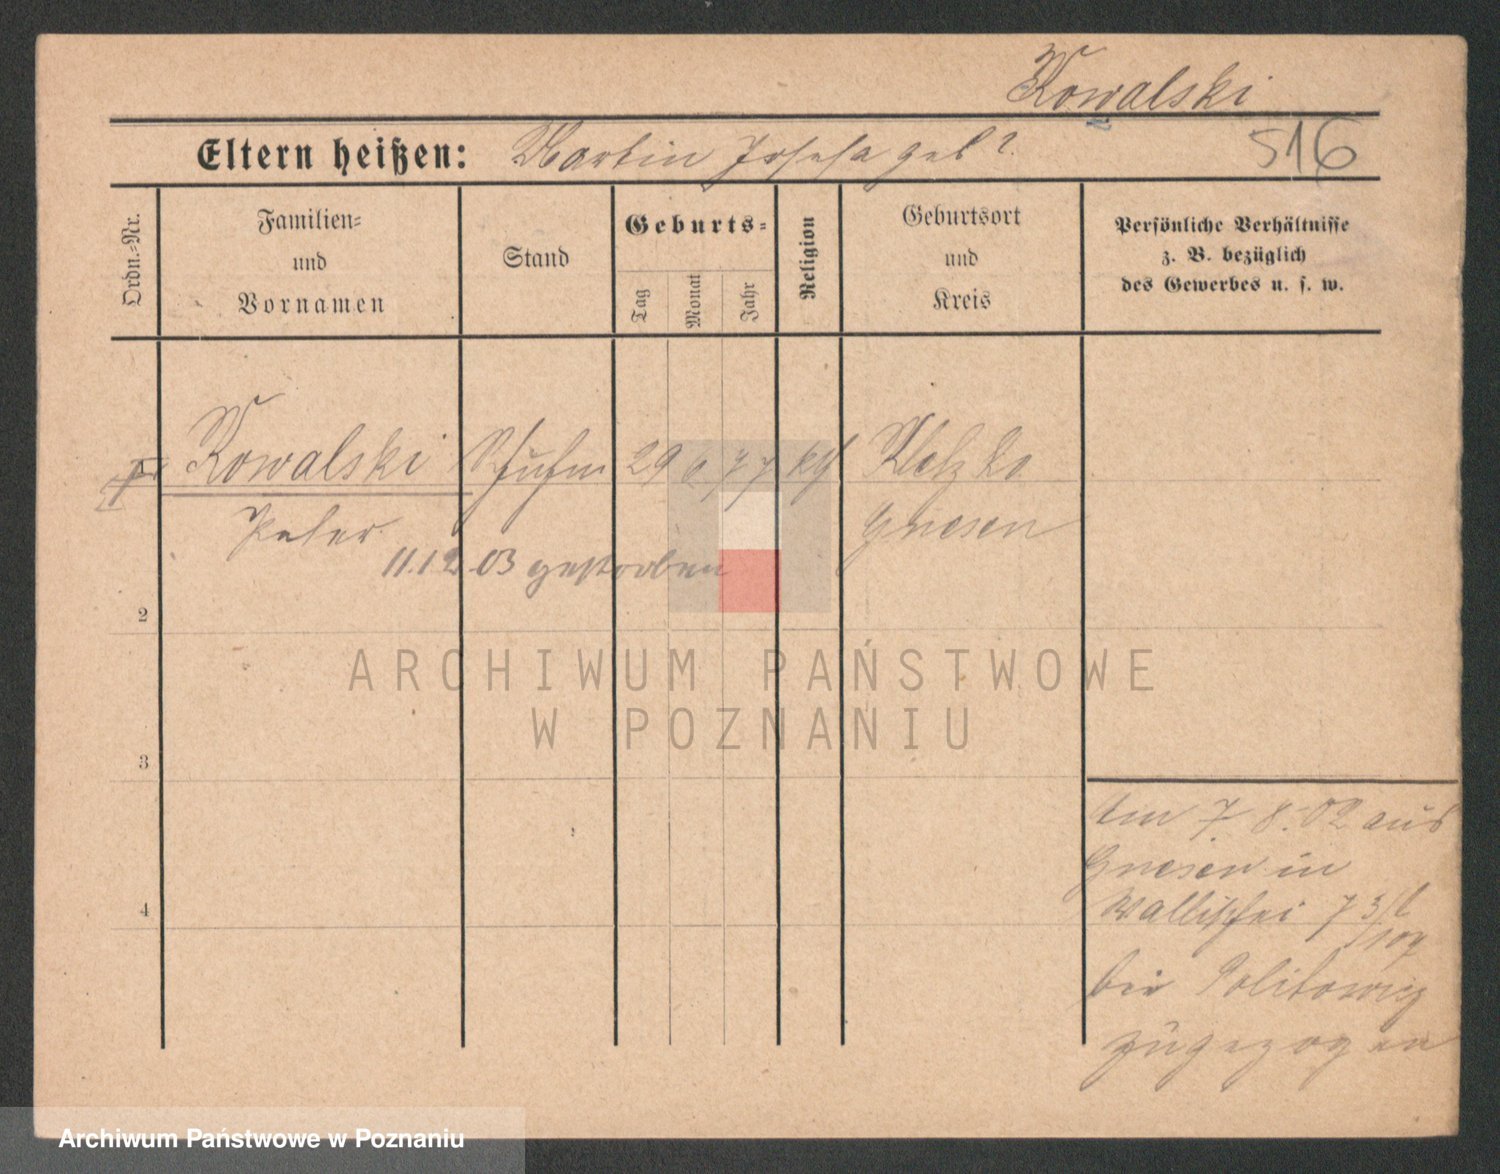 Kowalski
Eltern heißen: Martin Josefa geb ?
516
Ordn.-Nr.
Familien-
und
Vornamen
Stand
Geburts-
Tag
Monat
Jahr
Religion
Geburtsort
und
Kreis
Persönliche Verhältnisse
z. B. bezüglich
des Gewerbes u. s. w.
1
Kowalski 29 6 77 kth Kletzko
Peter Gnesen
11.12.03 gestorben
2
ARCHIWUM PAŃSTWOWE
W POZNANIU
3
Am 7. 8. 02 aus
Gnesen in
4
Wallischei 73
bei Politowicz
zugezogen
Archiwum Państwowe w Poznaniu